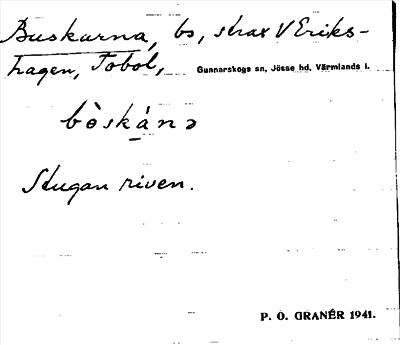 Buskarna, bs, strax V Eriks-
hagen, Tobol, Gunnarskogs sn, Jösse hd, Värmlands l.
bòskánə
Stugan riven.
P. O. GRANÉR 1941.